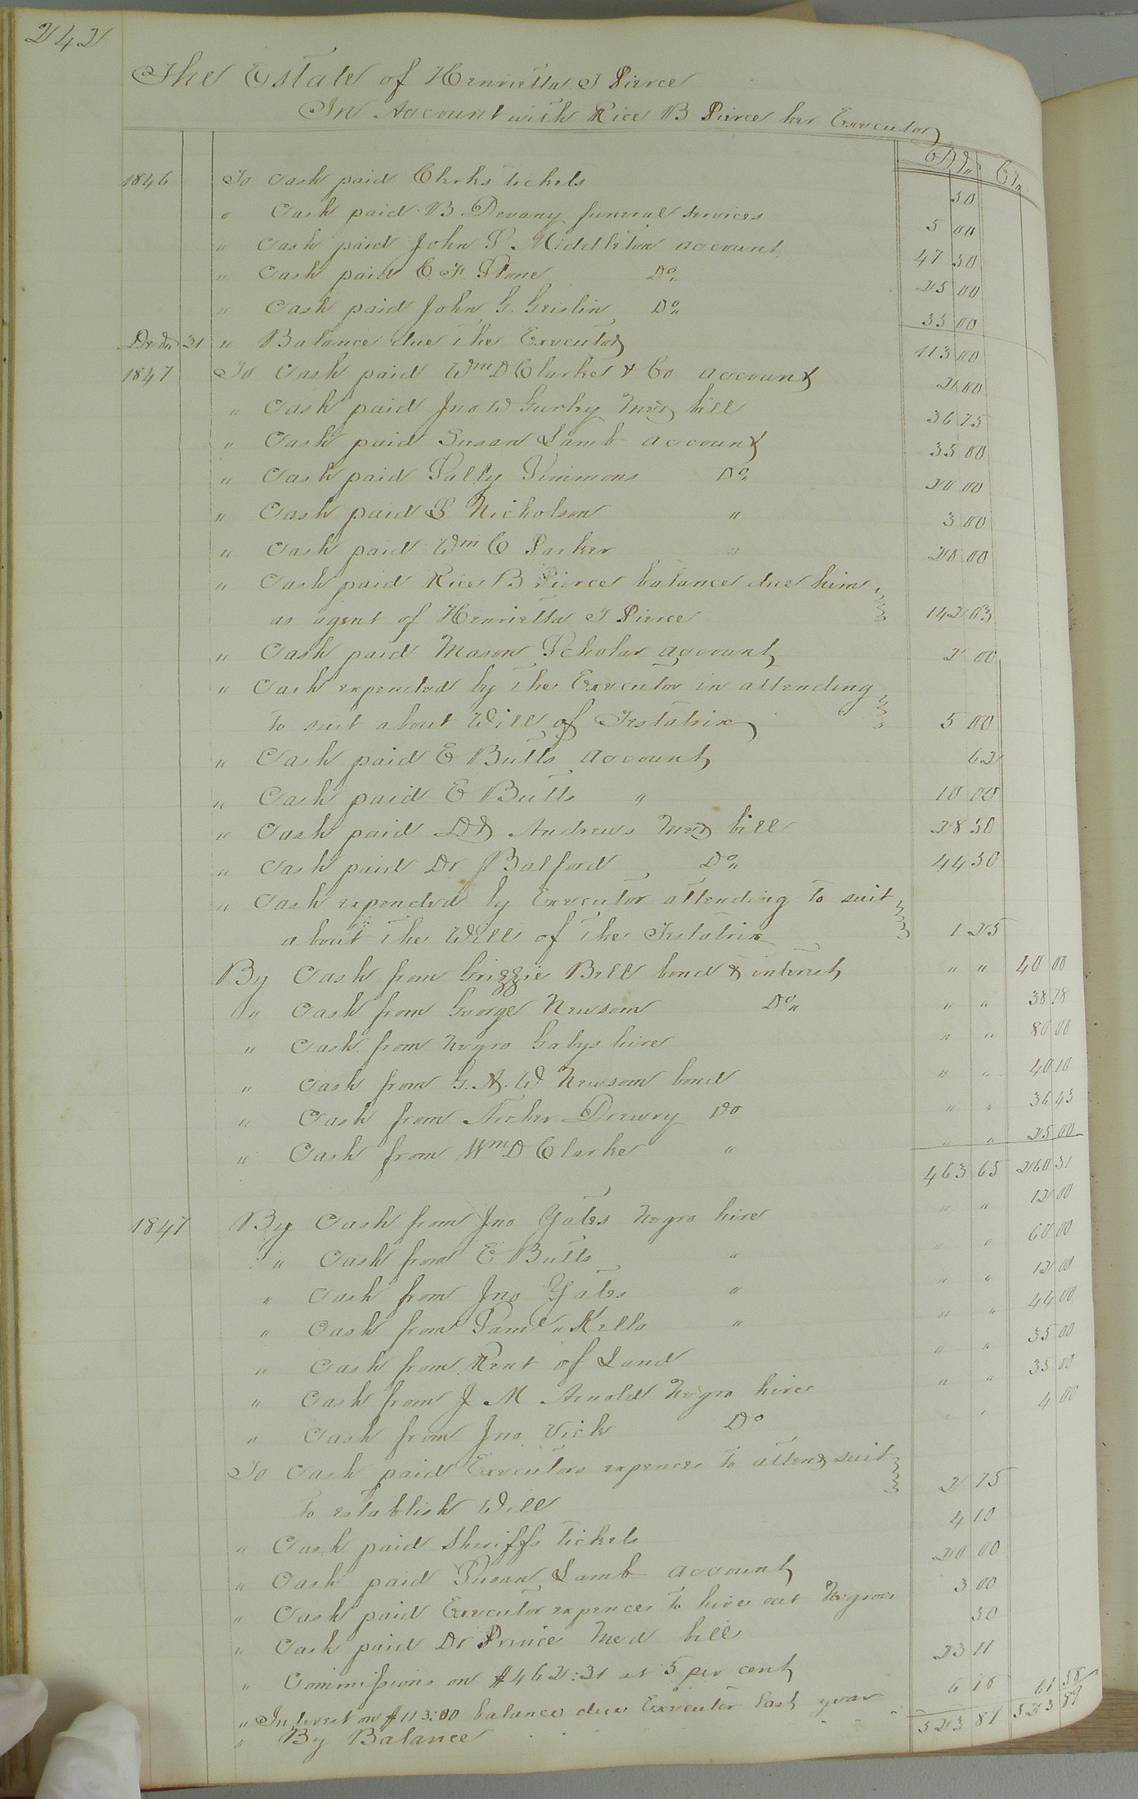 242
The Estate of Henrietta T Pierce
In Account with Rice B Pierce her Executor
Dr. Cr.
1846 To Cash paid Clerks tickets 50
" Cash paid B Devany funeral services 5 00
" Cash paid John S. Middleton account 47 50
" Cash paid C. F. Stone Do. 25 00
" Cash paid John G. Do. 35 00
31 " Balance due the Executor 113 00
1847 To Cash paid Wm D Clarke & Co account 2 00
" Cash paid Jno W Gurley Med bill 36 75
" Cash paid Susan Lamb account 35 00
" Cash paid Sally Simmons Do. 20 00
" Cash paid S Nicholson " 3 00
" Cash paid Wm C Parker " 20 00
" Cash paid Rice B Pierce balance due him
as agent of Henrietta T Pierce 142 03
" Cash paid Mason Scholar account 2 00
" Cash expended by the Executor in attending
to suit about Will of Testatrix 5 00
" Cash paid E Butts account 62
" Cash paid E Butts " 10 00
" Cash paid Andrews Med bill 28 50
" Cash paid Dr Balford Do. 44 50
" Cash expended by Executor attending to suit
about the Will of the Testatrix 1 25
By Cash from Grizzie Bell bond & interest " " 40 00
" Cash from George Newsom Do. " " 38 78
" Cash from Negro Gabys hire " " 80 00
" Cash from G. A. W Newsom bond " " 40 10
" Cash from Archer Drewry Do " " 36 43
" Cash from Wm D Clarke " " " 25 00
463 65 260 31
1847 By Cash from Jno Yates Negro hire " " 12 00
" Cash from E Butts " " " 60 00
" Cash from Jno Yates " " " 12 00
" Cash from Saml Kello " " " 44 00
" Cash from Rent of Land " " 35 00
" Cash from J M Arnold Negro hire " " 35 00
" Cash from Jno Vick Do " " 4 00
To Cash paid Executors expences to attend suit
to establish Will 2 75
" Cash paid Sheriffs tickets 4 10
" Cash paid Susan Lamb account 20 00
" Cash paid Executor expences to hire out Negroes 3 00
" Cash paid Dr Prince Med bill 50
" Commissions on $462:31 at 5 per cent 23 11
" Interest on $113:00 balance due Executor last year 6 78
" By Balance 61 58
523 89 523 89